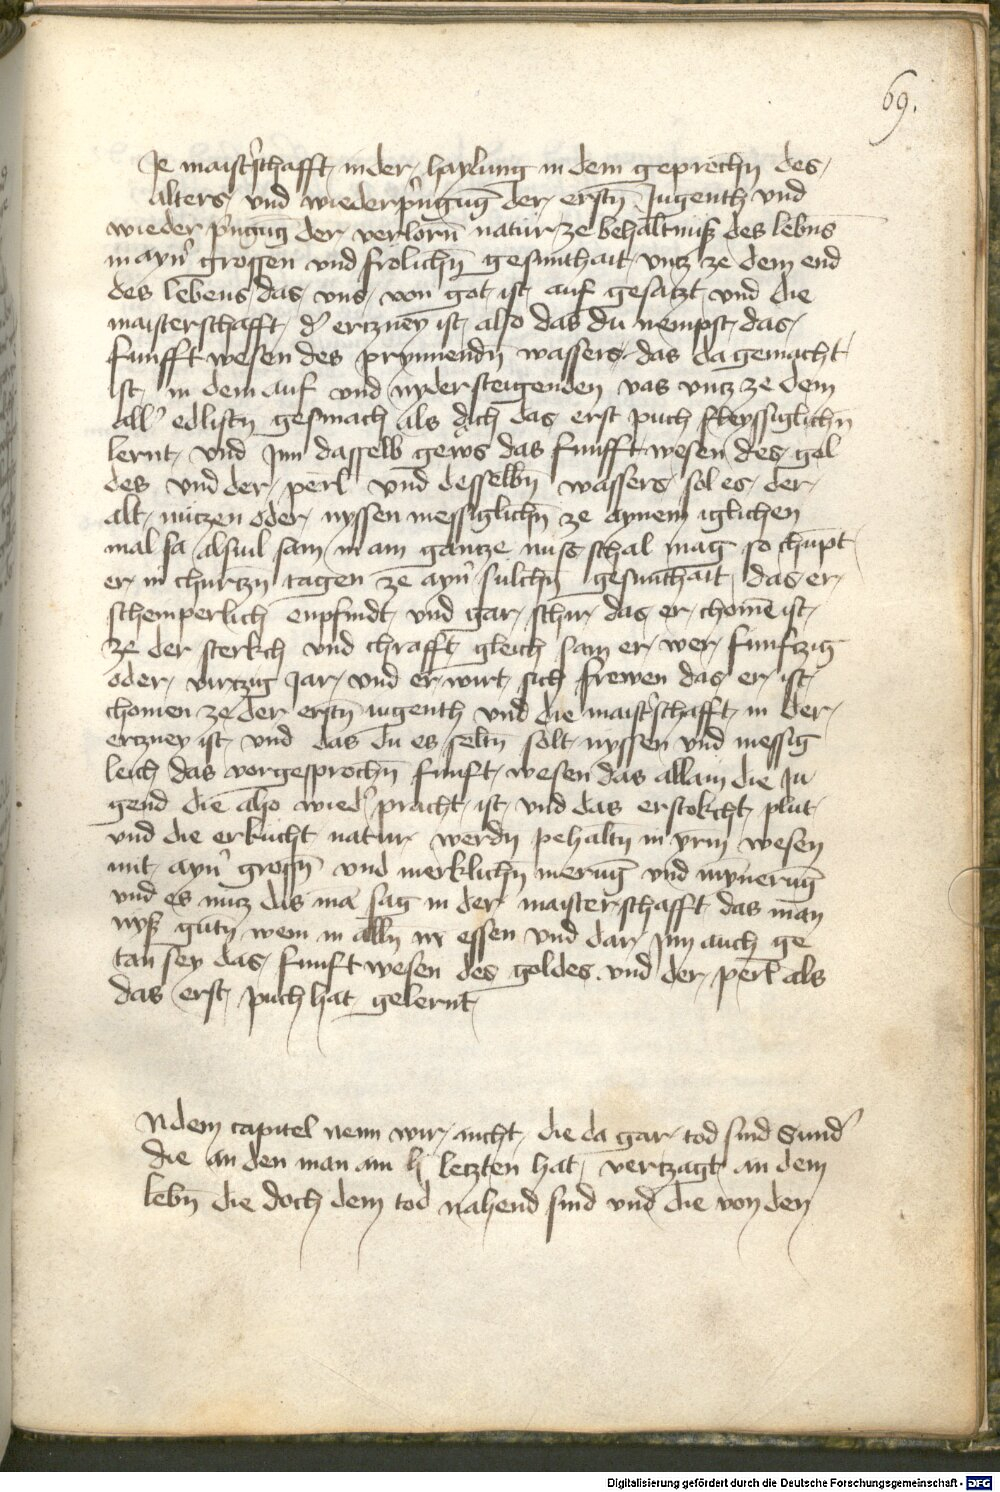 69.
Je maist'schafft in der haylung in dem geprechn̄ des
alters vnd wiederp'ngūg der erstn̄ Jugenth vnd
wieder p'ngūg der verlorn̄ natur ze behaltnuß des lebns̄
in ayn' grossen vnd frolichn̄ gesunthait vntz ze dem end
des lebens das vns von got ist auf gesatzt vnd die
maisterschafft d' ertzney ist also das du nempst das
funfft wesen des prynnendn̄ wassers das da gemacht
ist in dem auf vnd nydersteigenden vas vntz ze dem
all' edlistn̄ gesmach als dich das erst puch fleyssiglichn̄
lernt vnd Jnn dasselb gews das funfft wesen des gol
des vnd der perl vnd desselbn̄ wassers sol es der
alt nutzen oder nyssen messiglichn̄ ze aynem iglichen
mal sa alsuil sam in ain gantze nuss schal mag so chūpt
er in churtzn̄ tagen ze ayn' sulchn̄ gesunthait das er
schemperlich enpfindt vnd gar schir das er chomē ist
ze der sterkch vnd chrafft gleich sam er wer funftzig
oder virtzig Jar vnd er wirt sich frewen das er ist
chomen ze der erstn̄ iugenth vnd die maist'schafft in der
ertzney ist vnd das du es seltn̄ solt nyssen vnd messig
leich das vorgesprochn̄ funft wesen das allain die Ju
gend die also wied' pracht ist vnd das erstokcht plut
vnd die erkucht natur werdn̄ pehaltn̄ in yrm wesen
mit ayn' grossn̄ vnd merklichn̄ merūg vnd mynerūg
vnd es nutz das mā sag in der maisterschafft das man
nyß gutn̄ wein in alln̄ essen vnd dar Jnn auch ge
tan sey das funft wesen des goldes vnd der perl als
das erst puch hat gelernt
N dem capitel nenn wir nicht die da gar tod sind Sund'
die an den man am letzten hat vertzagt an dem
lebn̄ die doch dem tod nahend sind vnd die von den
Digitalisierung gefördert durch die Deutsche Forschungsgemeinschaft - DFG